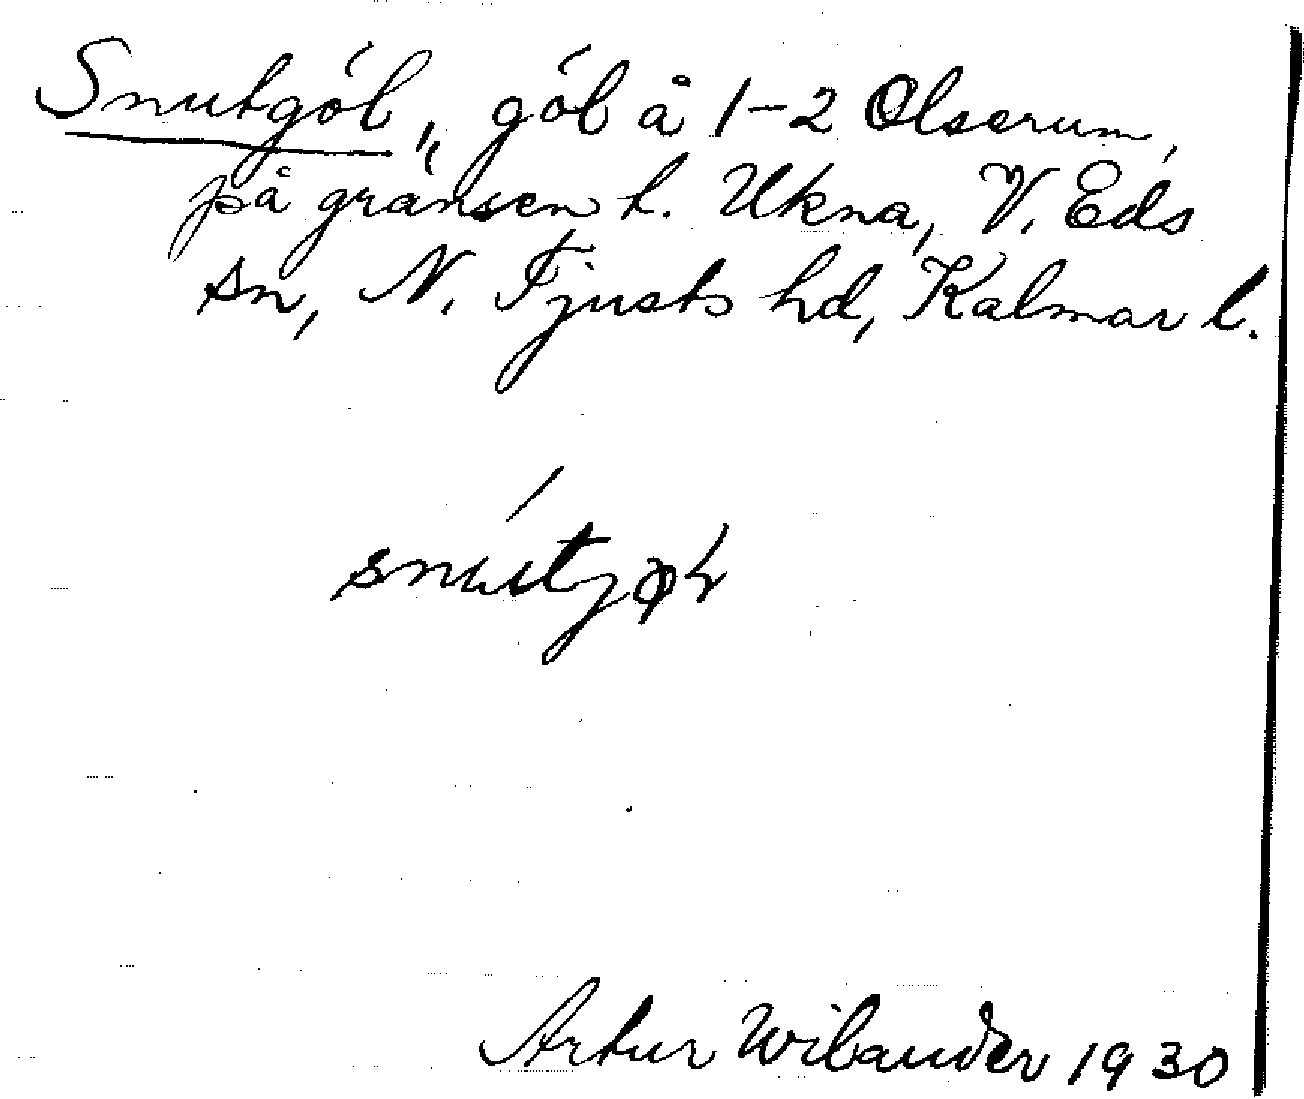 Snutgöl, göl å 1-2 Olserum,
på gränsen t. Ukna, V. Eds
sn, N. Tjusts hd, Kalmar l.
Artur Wilander 1930